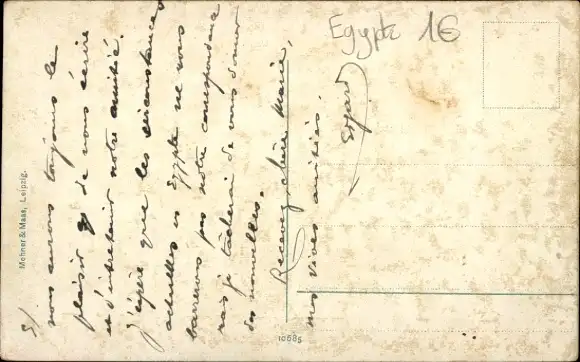 5/
nous aurons toujours le
plaisir de nous écrire
et d'entretenir notre amitié.
J'espère que les circonstances
actuelles en Egypte ne nous
barrerons pas notre correspondance
mais je tâcherai de vous donner
des nouvelles.
Recevez, chère Marie,
mes vives amitiés.
Egypte 16
Mohner & Maas, Leipzig.
10685